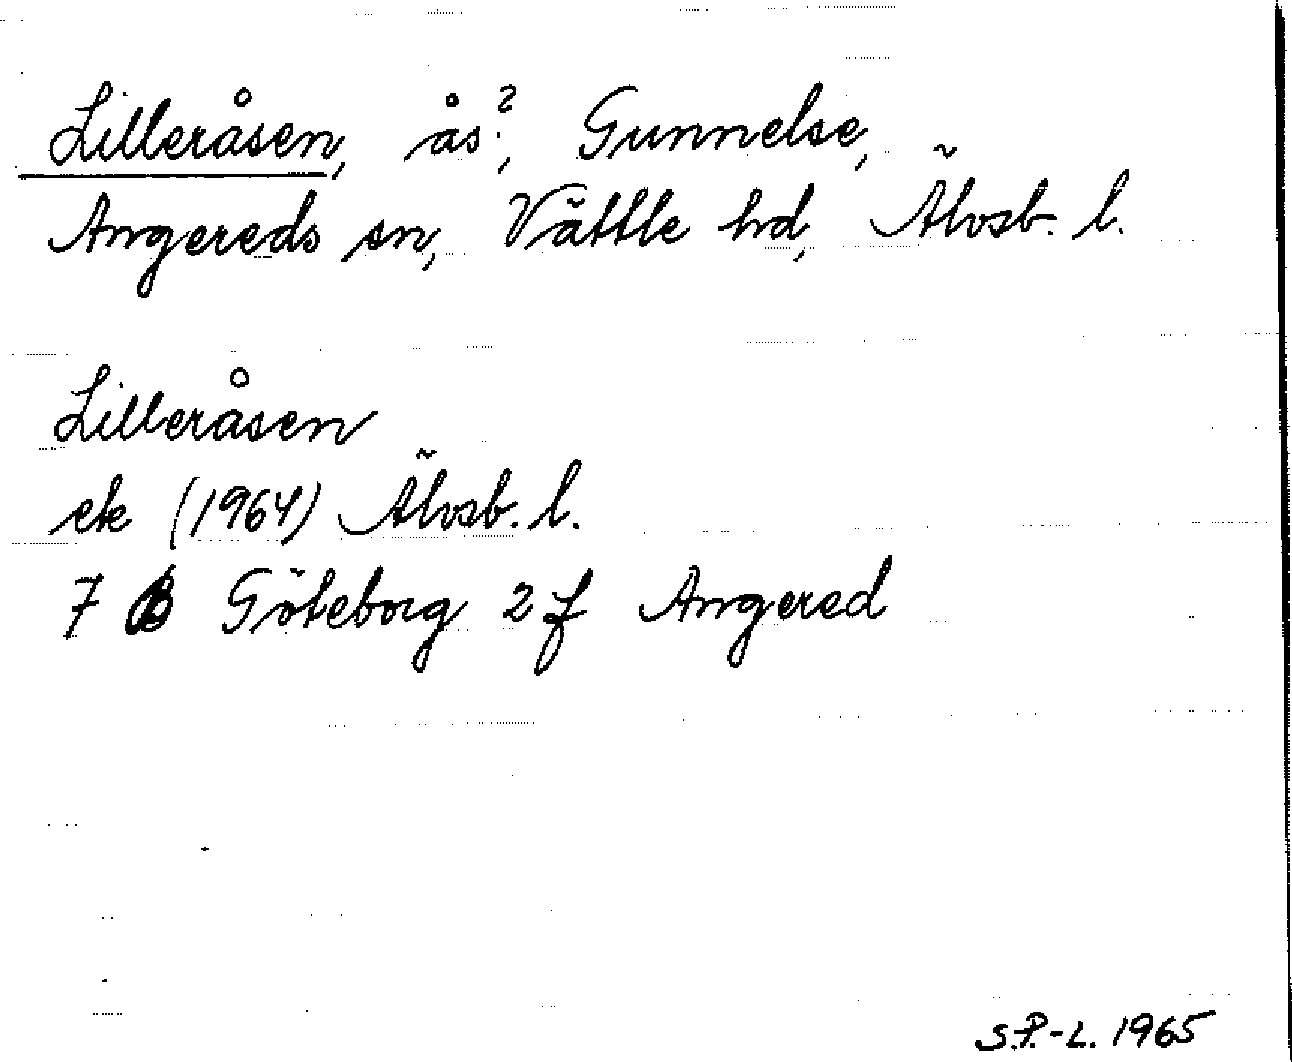 Lilleråsen, ås?, Gunnelse,
Angereds sn, Vättle hd, Älvsb. l.
Lilleråsen
ek (1964) Älvsb. l.
7 B Göteborg 2 f Angered
S.P.-L. 1965